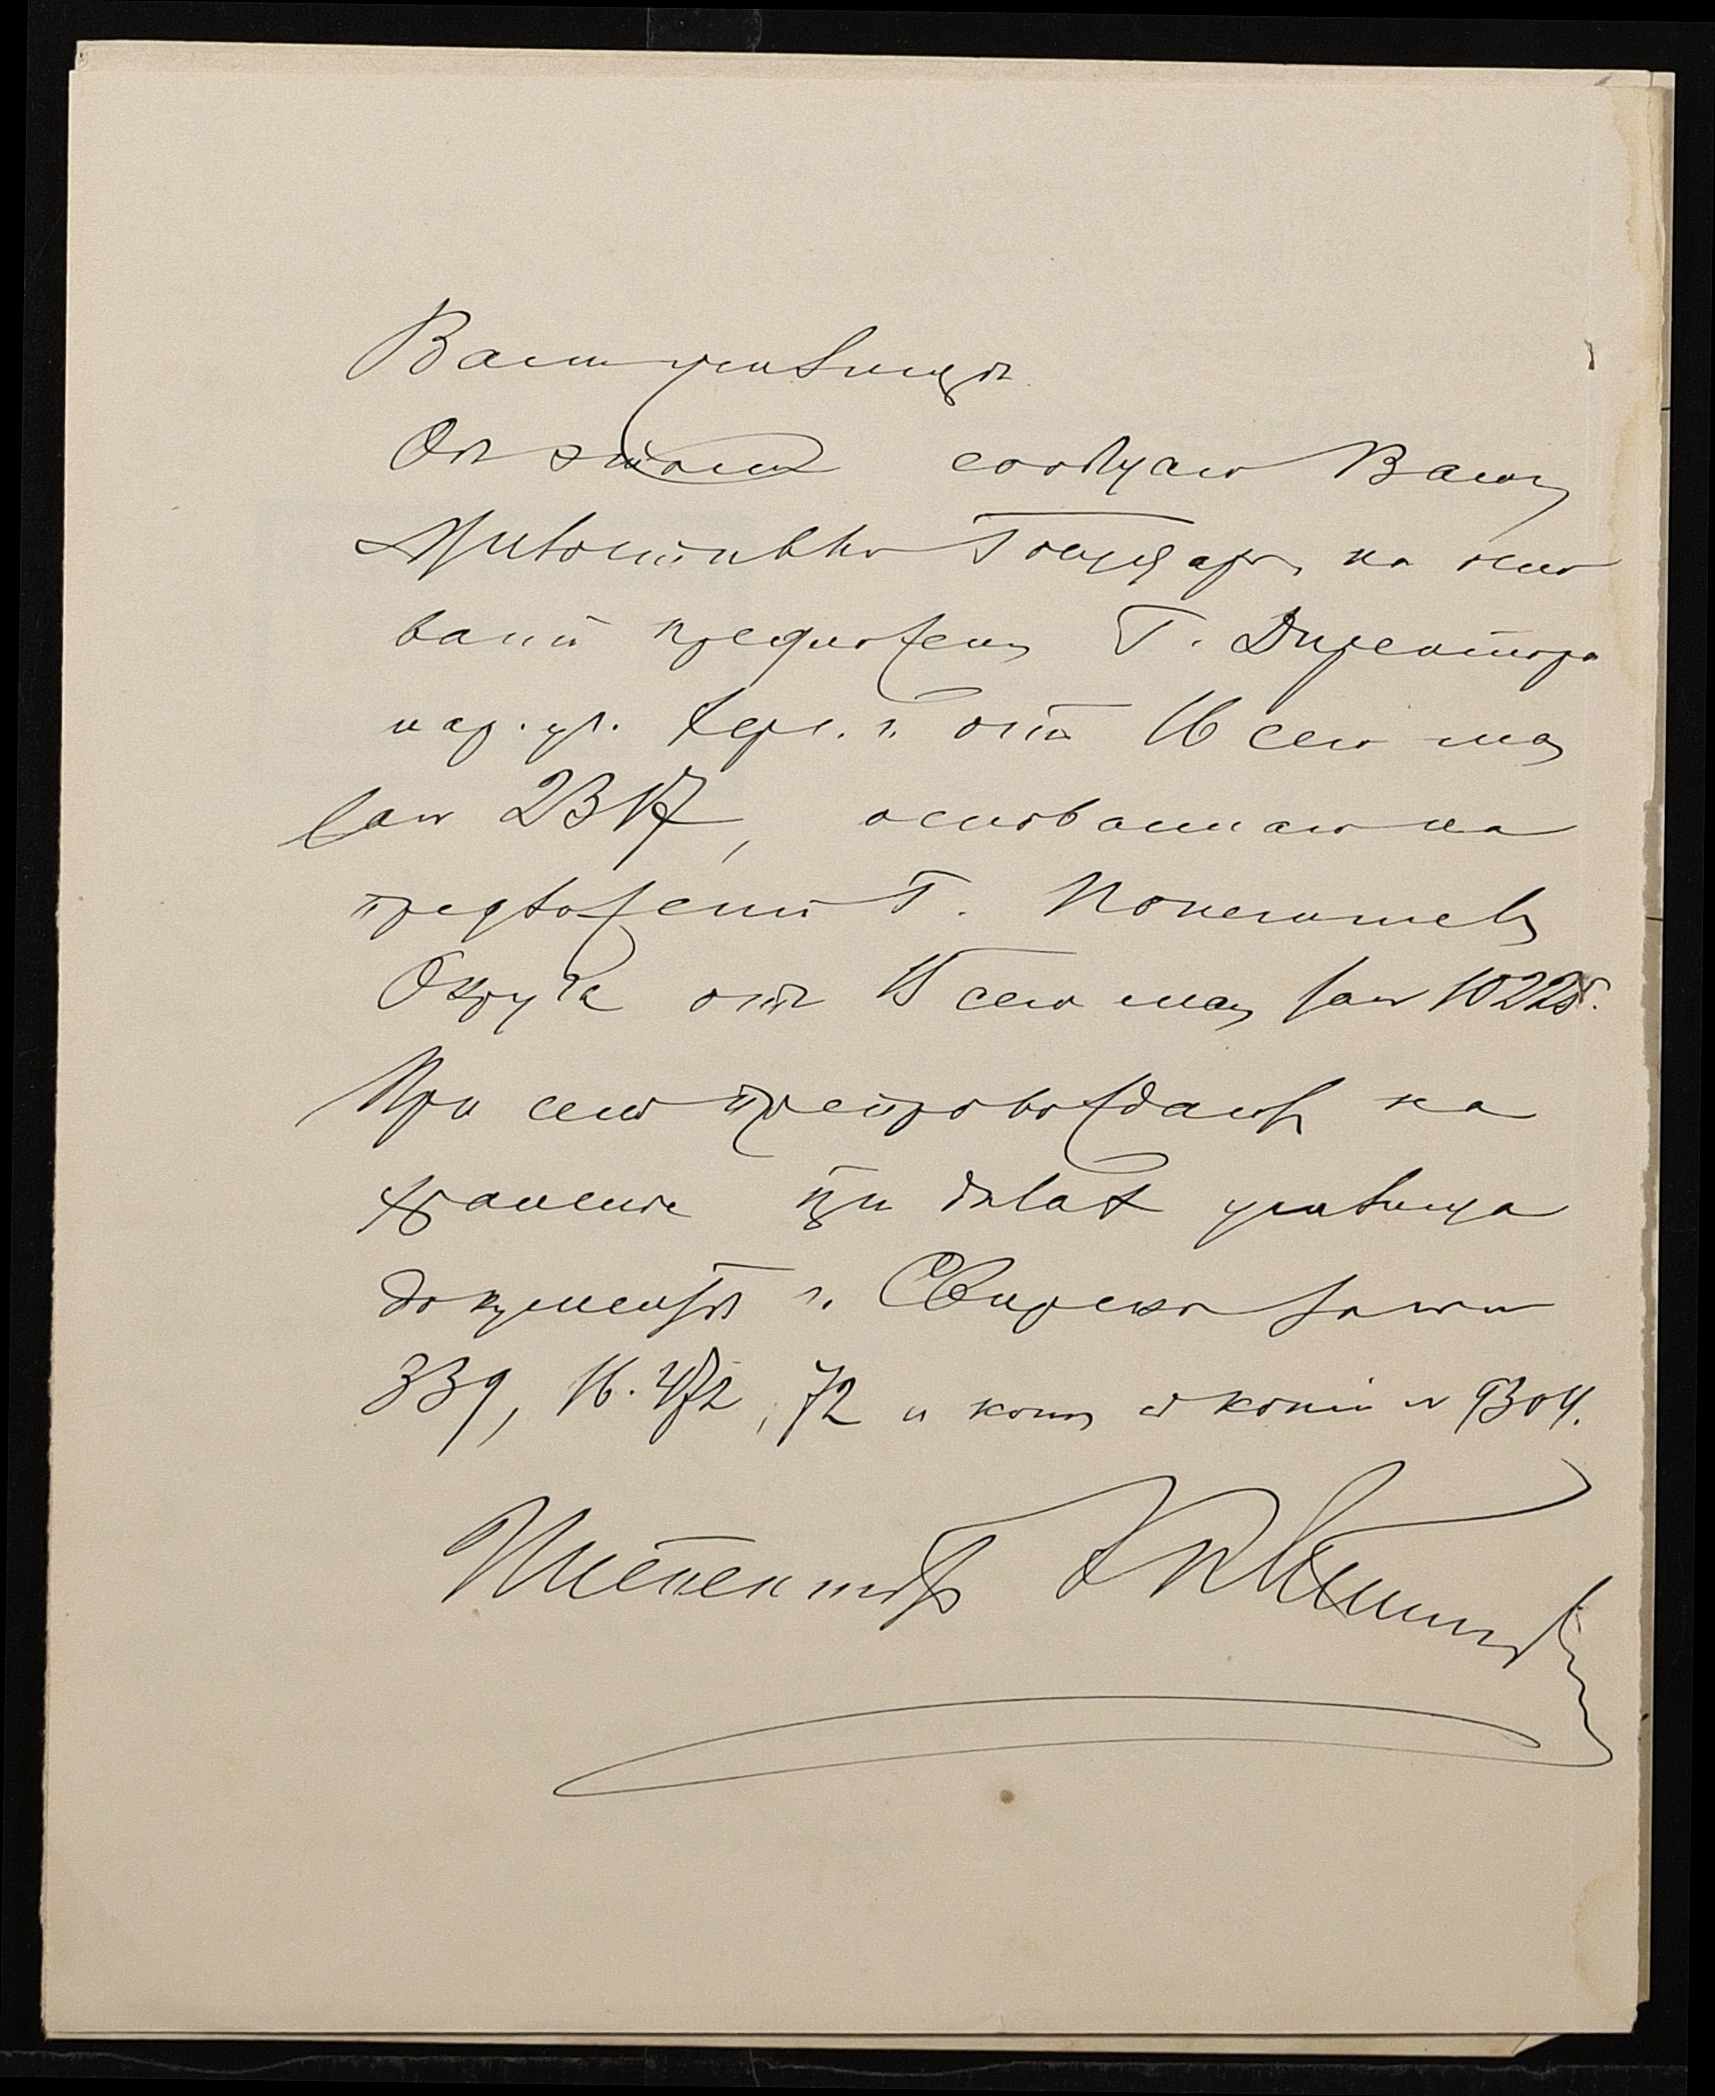 Вамъ училищѣ.
Объ этомъ сообщаю Вамъ
Милостивый Государь, на осно
ваніи предложенія Г. Директора
нар. уч. Херс. г. отъ 16 сего мая
за № 2317, основаннаго на
предложеніи Г. Попечителя
Округа отъ 15 сего мая за № 10225.
При семъ препровождаются на
храненіе при дѣлахъ училища
документы г. Свирско за №№
339, 16.472, 72 и копія съ копіи № 9304.
Инспекторъ